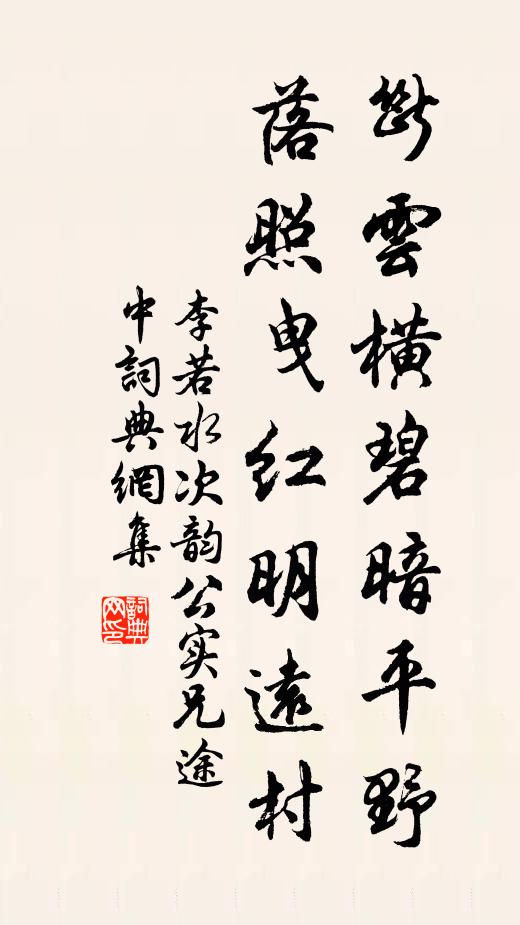 斷雲橫碧暗平野
落照曳红明遠村
李若水次韵公实兄途
中詞典網集
詞典
网印